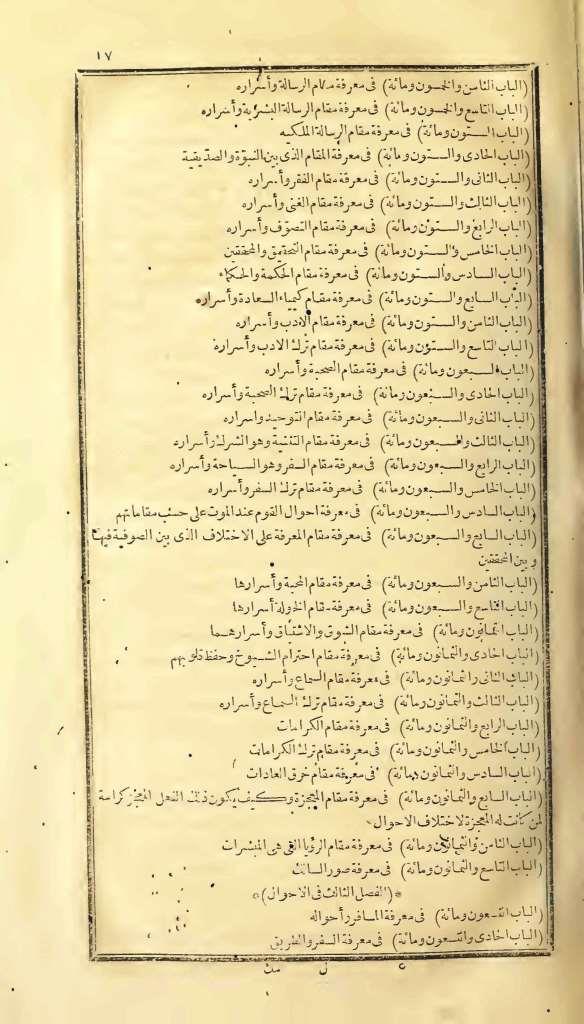 ١٧
(الباب الثامن والخمسون ومائة) فى معرفة مقام الرسالة وأسراره
(الباب التاسع والخمسون ومائة) فى معرفة مقام الرسالة البشرية وأسراره
(الباب الستون ومائة) فى معرفة مقام الرسالة الملكيه
(الباب الحادى والستون ومائة) فى معرفة المقام الذى بين النبوّة والصديقية
(الباب الثانى والستون ومائة) فى معرفة مقام الفقر وأسراره
(الباب الثالث والستون ومائة) فى معرفة مقام الغنى وأسراره
(الباب الرابع والستون ومائة) فى معرفة مقام التصوّف وأسراره
(الباب الخامس والستون ومائة) فى معرفة مقام التحقيق والمحققين
(الباب السادس والستون ومائة) فى معرفة مقام الحكمة والحكماء
(الباب السابع والستون ومائة) فى معرفة مقام كيمياء السعادة وأسراره
(الباب الثامن والستون ومائة) فى معرفة مقام الادب وأسراره
(الباب التاسع والستون ومائة) فى معرفة مقام ترك الادب وأسراره
(الباب السبعون ومائة) فى معرفة مقام الصحبة وأسراره
(الباب الحادى والسبعون ومائة) فى معرفة مقام ترك الصحبة وأسراره
(الباب الثانى والسبعون ومائة) فى معرفة مقام التوحيد واسراره
(الباب الثالث والسبعون ومائة) فى معرفة مقام التثنية وهو الشرك وأسراره
(الباب الرابع والسبعون ومائة) فى معرفة مقام السفر وهو السياحة وأسراره
(الباب الخامس والسبعون ومائة) فى معرفة مقام ترك السفر وأسراره
(الباب السادس والسبعون ومائة) فى معرفة احوال القوم عند الموت على حسب مقاماتهم
(الباب السابع والسبعون ومائة) فى معرفة مقام المعرفة على الاختلاف الذى بين الصوفية فيها
وبين المحققين
(الباب الثامن والسبعون ومائة) فى معرفة مقام المحبة وأسرارها
(الباب التاسع والسبعون ومائة) فى معرفة مقام الخلة وأسرارها
(الباب الثمانون ومائة) فى معرفة مقام الشوق والاشتياق وأسرارهما
(الباب الحادى والثمانون ومائة) فى معرفة مقام احترام الشيوخ وحفظ قلوبهم
(الباب الثانى والثمانون ومائة) فى معرفة مقام السماع وأسراره
(الباب الثالث والثمانون ومائة) فى معرفة مقام ترك السماع وأسراره
(الباب الرابع والثمانون ومائة) فى معرفة مقام الكرامات
(الباب الخامس والثمانون ومائة) فى معرفة مقام ترك الكرامات
(الباب السادس والثمانون ومائة) فى معرفة مقام خرق العادات
(الباب السابع والثمانون ومائة) فى معرفة مقام المعجزة وكيف يكون ذلك الفعل المعجز كرامة
لمن كانت له المعجزة لاختلاف الاحوال
(الباب الثامن والثمانون ومائة) فى معرفة مقام الرؤيا التى هى المبشرات
(الباب التاسع والثمانون ومائة) فى معرفة صور السالك
*(الفصل الثالث فى الاحوال)*
(الباب التسعون ومائة) فى معرفة المسافر وأحواله
(الباب الحادى والتسعون ومائة) فى معرفة السفر والطريق